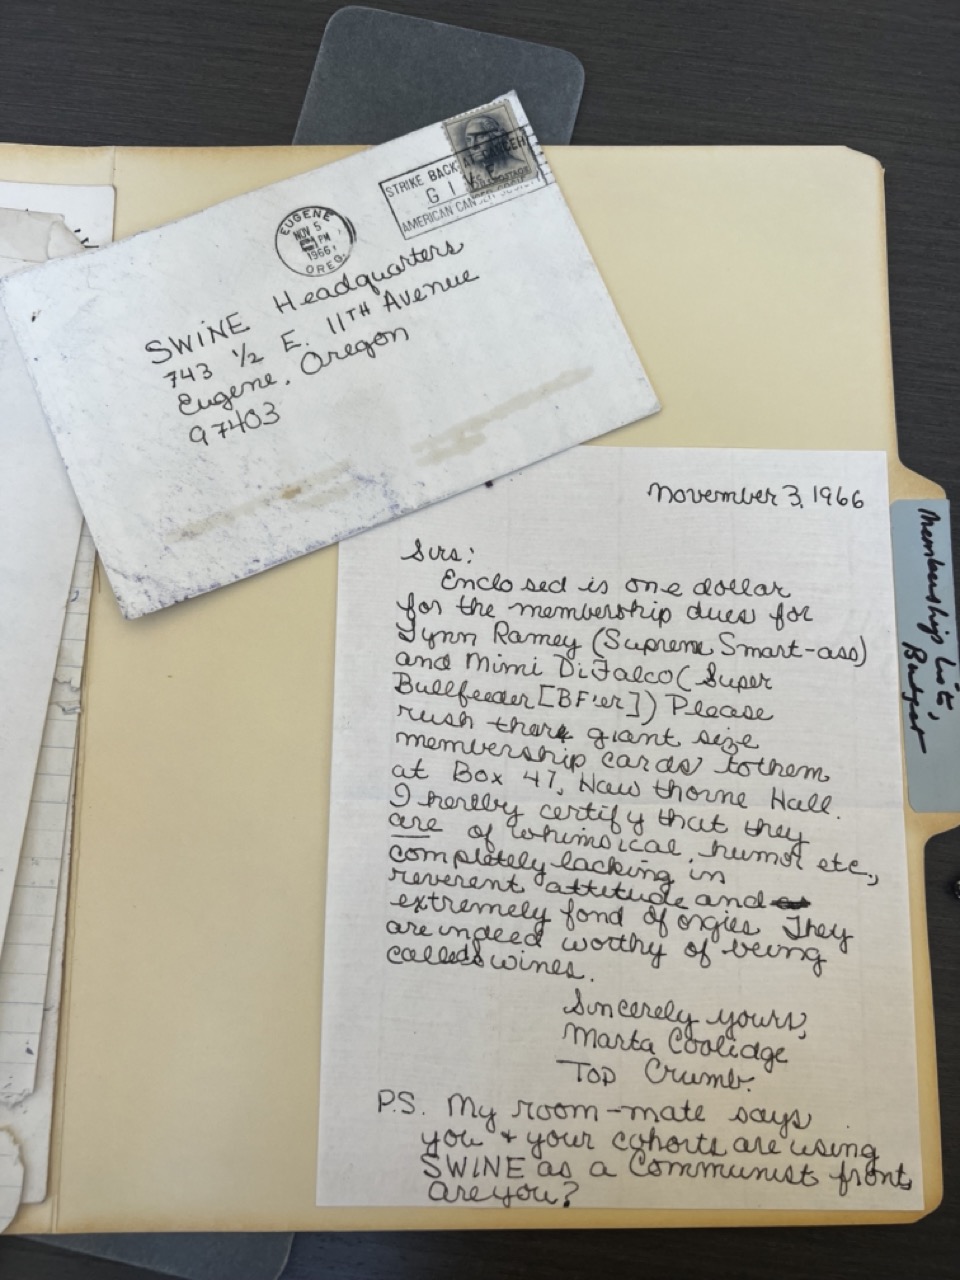 STRIKE BACK AT CANCER
GIVE
AMERICAN CANCER SOCIETY
U.S. POSTAGE
EUGENE
NOV 5
PM
1966
OREG.
SWINE Headquarters
743 1/2 E. 11TH Avenue
Eugene, Oregon
97403
Membership Lists,
Budget
November 3, 1966
Sirs:
Enclosed is one dollar
for the membership dues for
Lynn Ramey (Supreme Smart-ass)
and Mimi DiFalco (Super
Bullfeeder [BF'er]) Please
rush there giant size
membership cards to them
at Box 47, Hawthorne Hall.
I hereby certify that they
are of whimsical, humor etc.,
completely lacking in
reverent attitude and
extremely fond of orgies They
are indeed worthy of being
called swines.
Sincerely yours,
Marta Coolidge
Top Crumb.
P.S. My room-mate says
you + your cohorts are using
SWINE as a Communist front,
are you?